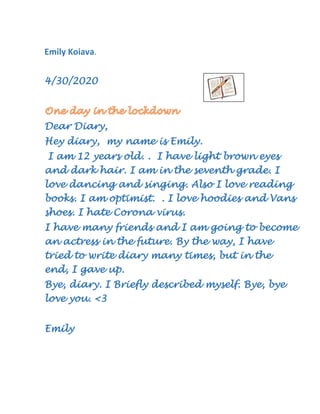 Emily Koiava.
4/30/2020
One day in the lockdown
Dear Diary,
Hey diary,  my name is Emily.
I am 12 years old. .  I have light brown eyes
and dark hair. I am in the seventh grade. I
love dancing and singing. Also I love reading
books. I am optimist.  . I love hoodies and Vans
shoes. I hate Corona virus.
I have many friends and I am going to become
an actress in the future. By the way, I have
tried to write diary many times, but in the
end, I gave up.
Bye, diary. I Briefly described myself. Bye, bye
love you. <3
Emily